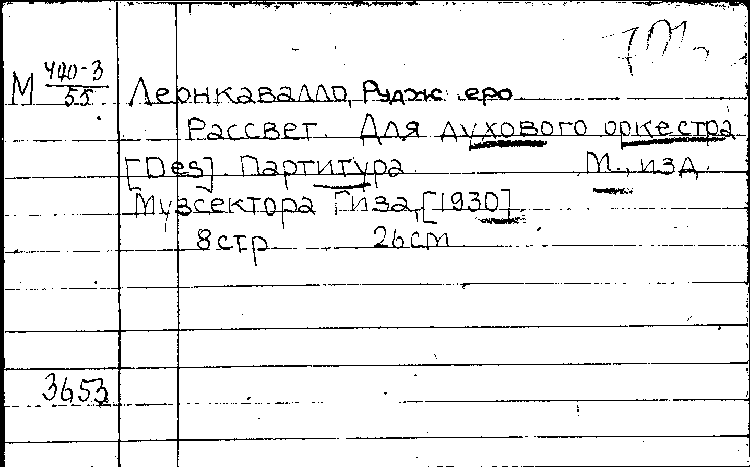 М 440-3
55
Леонкавалло, Руджеро
Рассвет. Для духового оркестра
[Des]. Партитура М., изд.
Музсектора Гиза, [1930]
8 стр. 26 см
3653